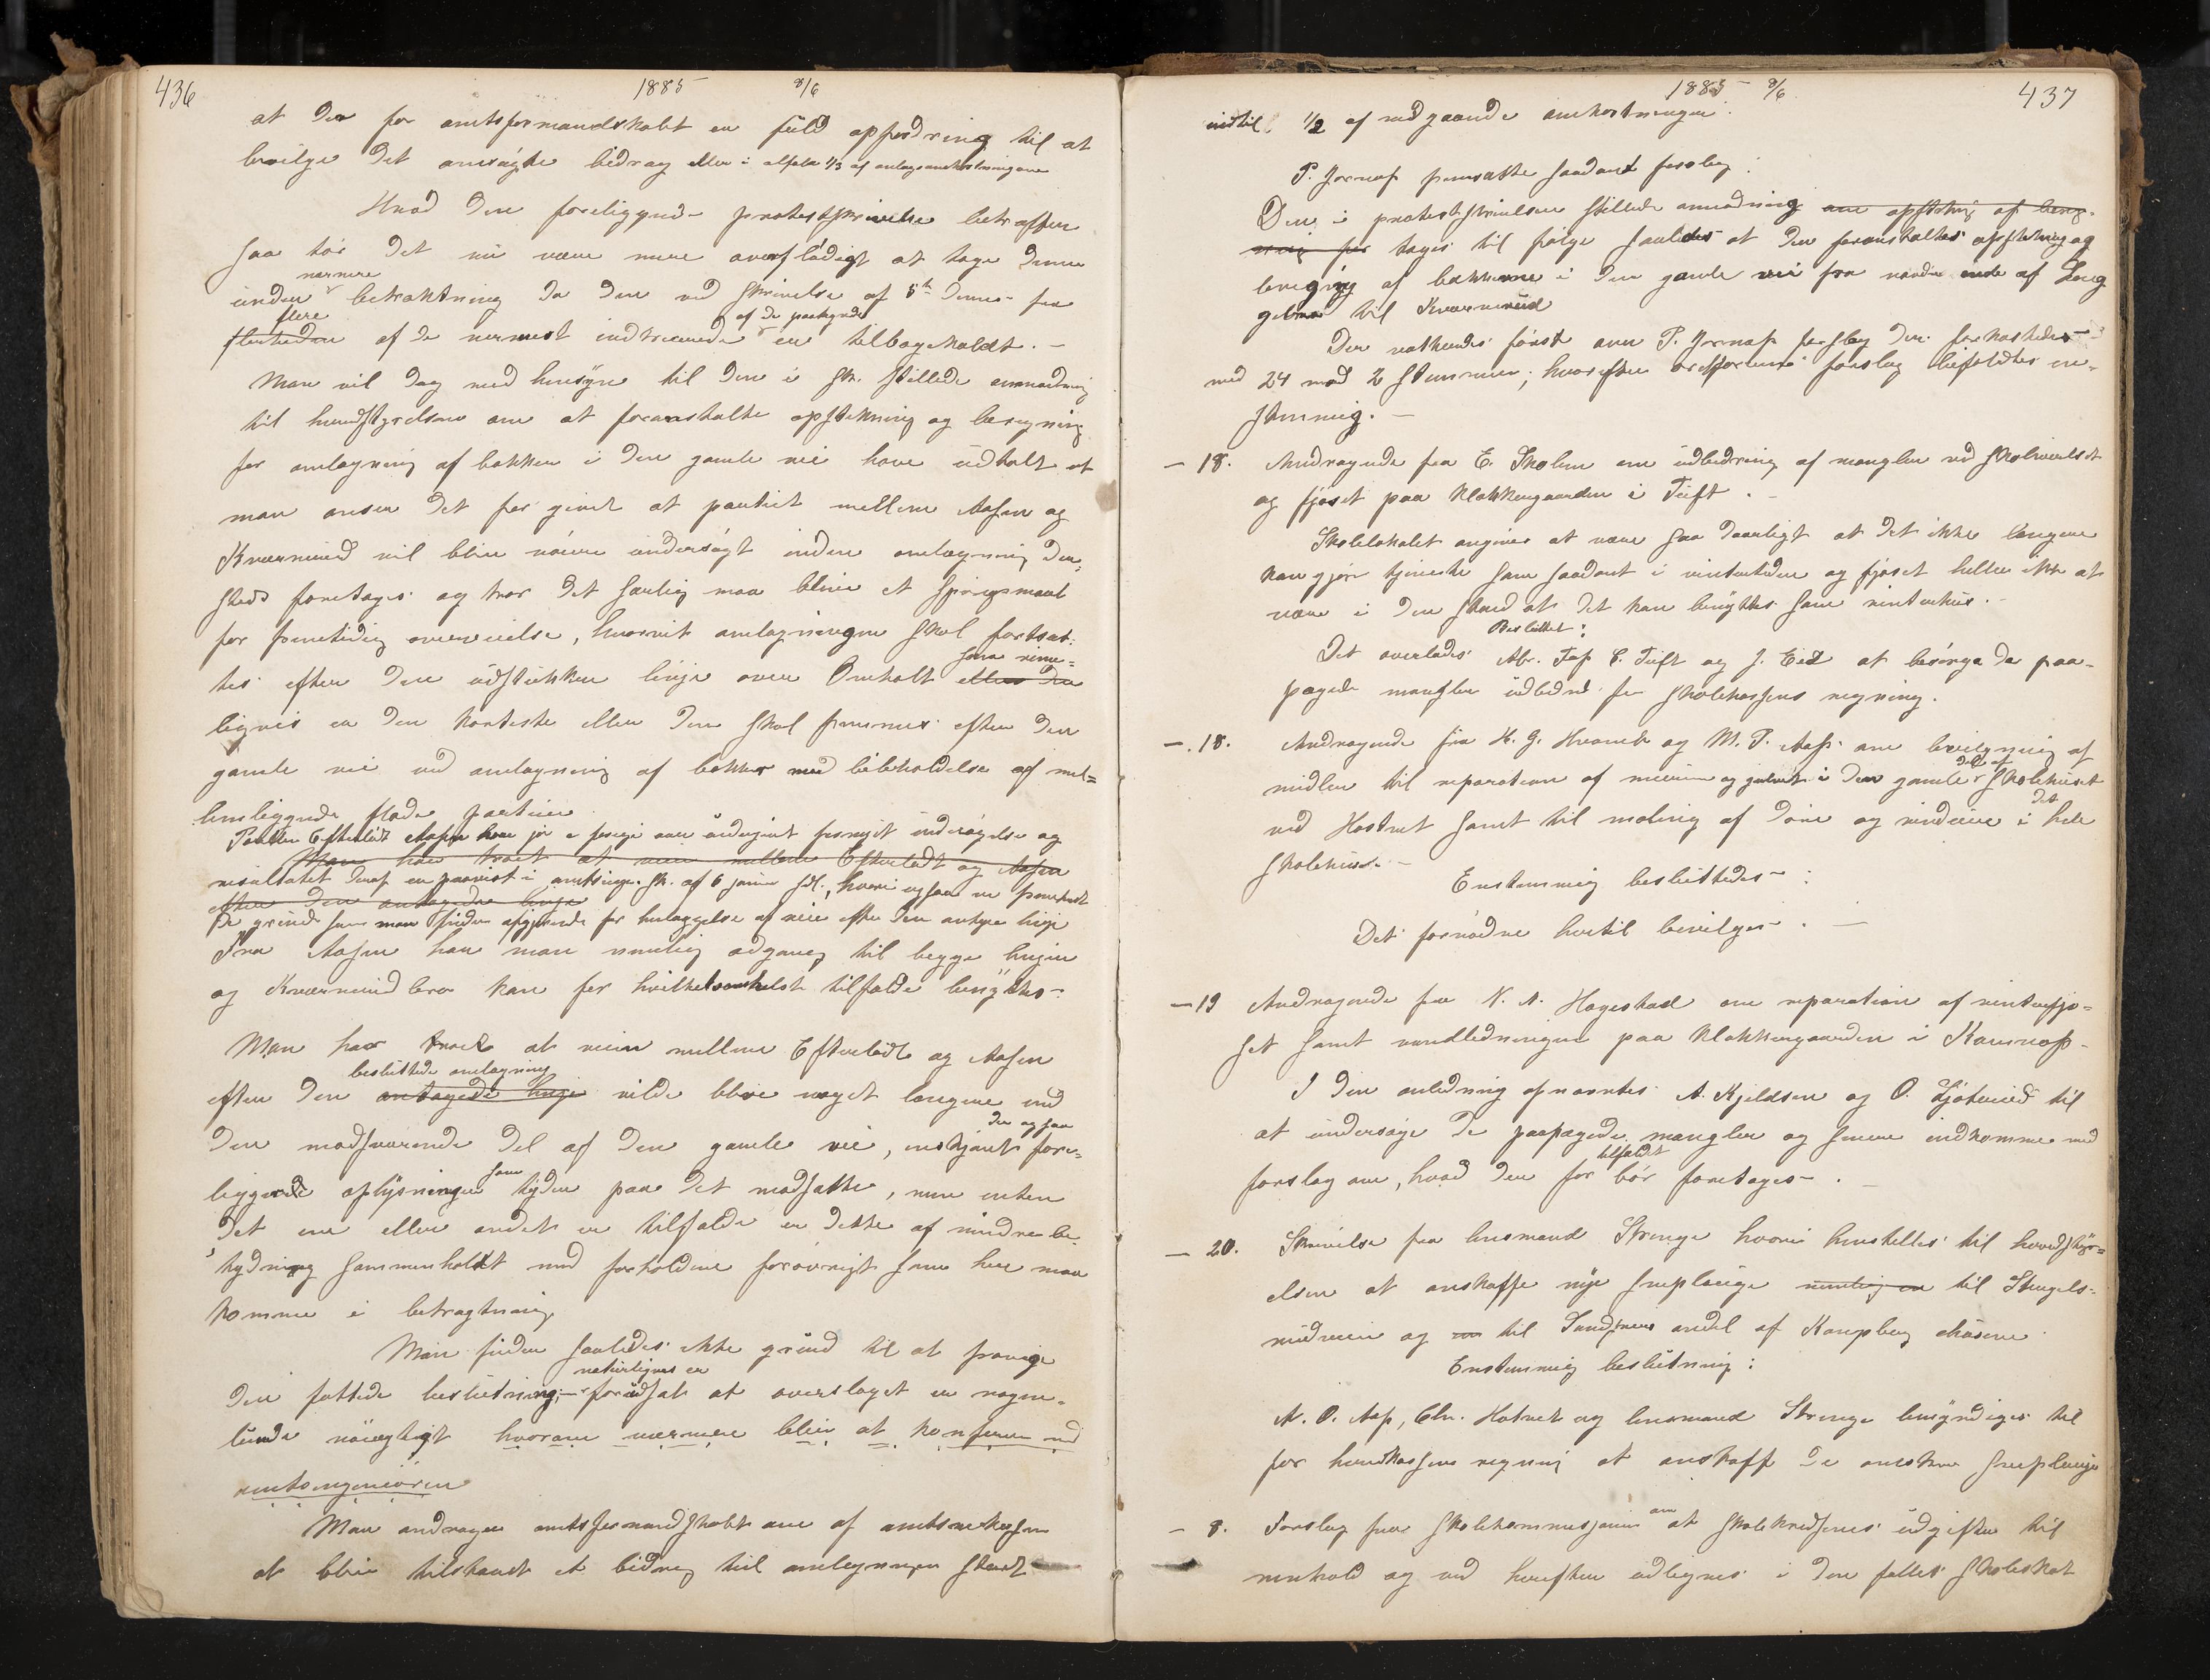 436 1885 8/6
at der for amtsformandskabet er fuld opfordring til at
bevilge det ansøgte bidrag eller i alfald 1/3 af anlægsomkostningerne
Hvad den foreliggende protestskrivelse betræffer
saa tør det nu være mere overflødigt at tage denne
under nærmere betraktning da den ved skrivelse af 5te dennes fra
flertheden flere af de nærmest indtrædende af de paategnede er tilbagekaldt. -
Man vil dog med hensyn til den i skr. stillede anmodning
til herredsstyrelsen om at foranstalte opstikning og beregning
for omlægning af bakker i den gamle vei have udtalt at
man anser det for givet at partiet mellem Aasen og
Kværnerud vil blive nøiere undersøgt inden omlægning der-
steds foretages og tror det særlig maa blive et spørgsmaal
for fremtidig overveielse, hvorvidt omlægningen skal fortsæt-
tes efter den udstukken linje over Omholt eller den som rime-
ligvis er den korteste eller den skal fremmes efter den
gamle vei ved omlægning af bakker med bibeholdelse af mel-
lemliggende flade partier
Partiet Eftelødt Aasen har jo i forrige aar undergaaet fornyet undersøgelse og
Man har troet at veien mellem Eftelødt og Aasen
resultatet deraf er paavist i amtsingr. skr. af 6 januar sdl., hvori ogsaa er fremholdt
efter den antagede linje
de grunde som man finder afgjørende for henlæggelse af veie efter den antagne linje
Fra Aasen har man nemlig adgang til begge linjer
og Kværnerud bro kan for hvilketsomhelst tilfælde benyttes.
Man har troet at veien mellem Eftelødt og Aasen
efter den antagede linje besluttede omlægning vilde blive noget længere end
den modsvarende del af den gamle vei, enskjønt der ogsaa fore-
liggende oplysninger som tyder paa det modsatte, men enten
det ene eller andet er tilfælde er dette af mindre be-
tydning sammenholdt med forholdene forøvrigt som her maa
komme i betragtning
Man finder saaledes ikke grund til at fravige
den fattede beslutning, - naturligvis er forudsat at overslaget er nogen-
lunde nøiagtigt hvorom nærmere blir at konferere med
amtsingeniøren
Man andrager amtsformandskabet om af amtsveikassen
at blive tilstaaet et bidrag til omlægningen stort
1885 - 8/6 437
indtil 1/2 af medgaaende omkostninger.
P. Jornaas fremsatte saadant forslag:
Den i protestskrivelsen stillede anmodning om opstikning af bereg-
ning for tages til følge saaledes at der foranstaltes opstikning og
beregning af bakkerne i den gamle vei fra nordre ende af Lang
gebro til Kværnerud
Der votheredes først over P. Jornaas forslag der forkastedes
med 24 mod 2 stemmer; hvorefter ordførerens forslag bifaldtes en-
stemmig. -
- 18. Andragende fra E. Skolem om udbedring af mangler ved skoleværelset
og fjøset paa klokkergaarden i Tuft. -
Skolelokalet angives at være saa daarligt at det ikke længere
kan gjøre tjeneste som saadant i vintertiden og fjøset heller ikke at
være i den stand at det kan benyttes som vinterhus. -
Besluttet:
Det overlades Abr. Tof. E. Tuft og J. Eed at besørge de paa-
pegede mangler udbedret for skolekassens regning.
-. 18. Andragende fra H. G. Hvamb og M. P. Aas om bevilgning af
midler til reparation af murene og gulvet i den gamle del af skolehuset
ved Hostvet samt til maling af døre og vinduer i det hele
skolehus. -
Enstemmig besluttedes:
Det fornødne hertil bevilges. -
- 19 Andragende fra N. N. Hagestad om reparation af vinterfjø-
set samt vandledningen paa klokkergaarden i Komnæs.
I den anledning opnævntes A. Kjeldsen og O. Ljøterud til
at undersøge de paapegede mangler og senere indkomme med
forslag om, hvad der for tilfældet bør foretages. -
- 20. Skrivelse fra lensmand Strenge hvori henstilles til herredsstyr-
elsen at anskaffe nye sneplouge nemlig en til Stengels-
rudveien og en til Sandsvers andel af Kongsberg chaussee.
Enstemmig beslutning:
N. O. Aas, Chr. Hotvet og lensmand Strenge bemyndiges til
for herredkassens regning at anskaffe de ønskede sneplouge
- 8. Forslag fra skolekommissionen om at skolekredsernes udgifter til
renhold og ved herefter udlignes i den fælles skoleskat